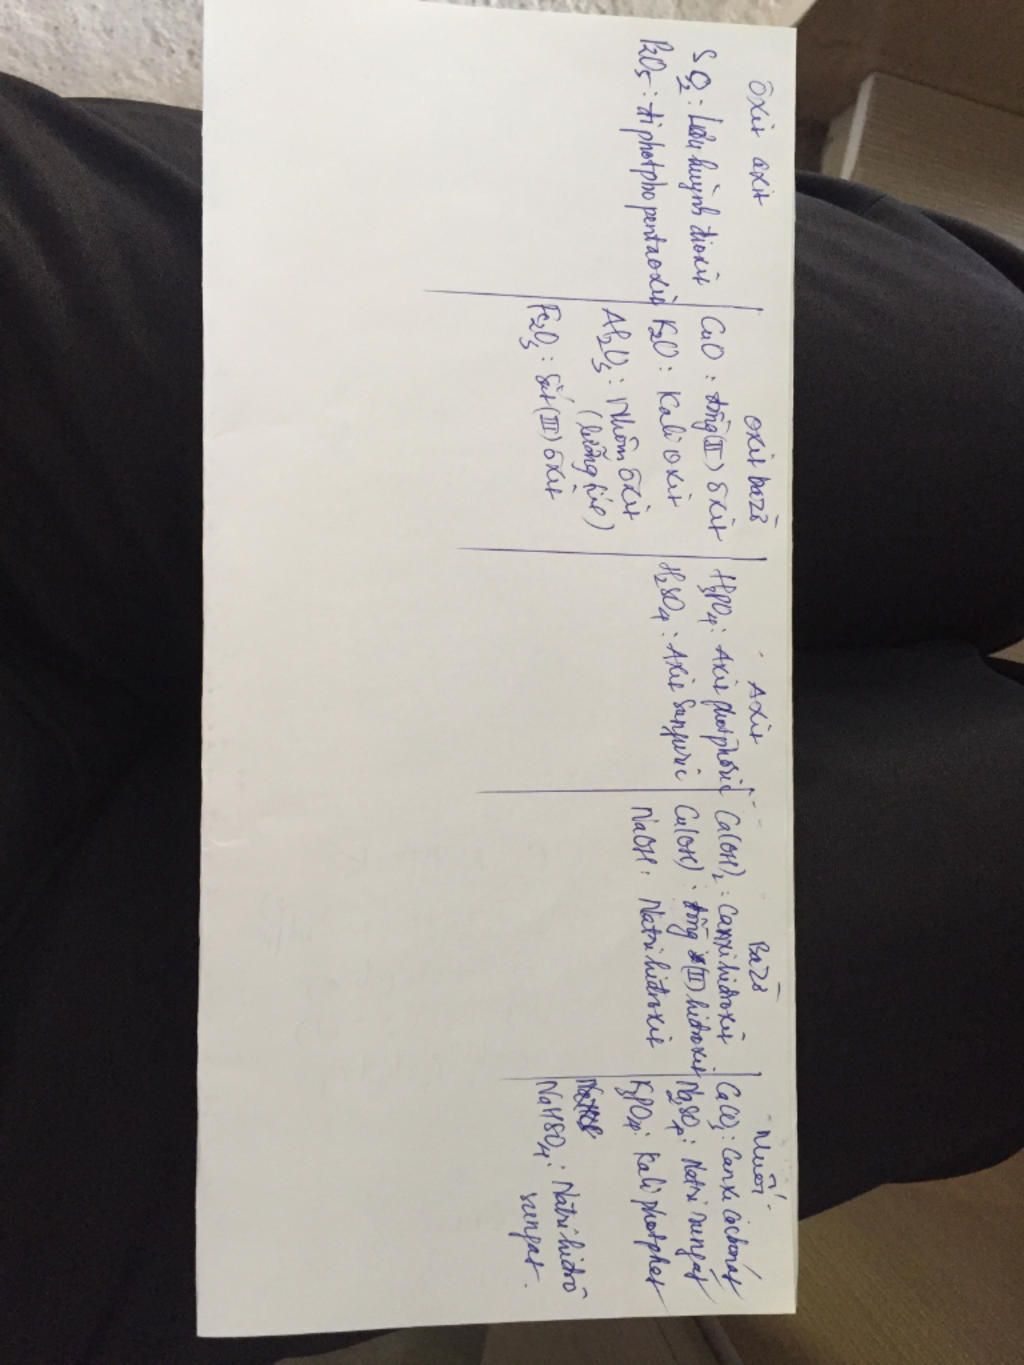 ôxit axit
SO2 : Lưu huỳnh đioxit
P2O5 : điphotpho pentaoxit
oxit bazơ
CuO : đồng (II) ôxit
K2O : Kali oxit
Al2O3 : Nhôm ôxit
(lưỡng tính)
Fe2O3 : Sắt (III) ôxit
Axit
H3PO4 : Axit photphoric
H2SO4 : Axit Sunfuric
Bazơ
Ca(OH)2 : Canxi hidroxit
Cu(OH) : đồng (II) hidroxit
NaOH : Natri hidroxit
Muối
CaCO3 : Canxi cacbonat
Na2SO4 : Natri sunfat
K3PO4 : Kali photphat
NaHSO4 : Natri hidrô
sunfat.